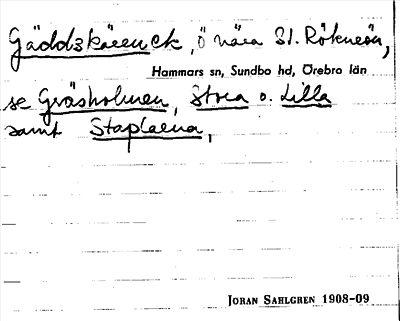 Gäddskärenck, ö nära St. Rökneön,
Hammars sn, Sundbo hd, Örebro län
se Gräsholmen, Stora o. Lilla
samt Staplarna,
JORAN SAHLGREN 1908-09